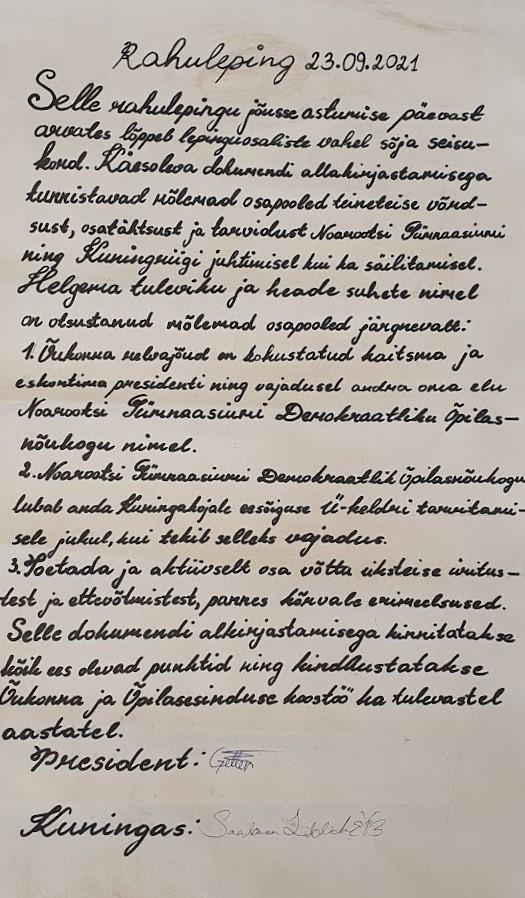 Rahuleping 23.09.2021
Selle rahulepingu jõusse astumise päevast
arvates lõppeb lepinguosaliste vahel sõja seisu-
kord. Käesoleva dokumendi allakirjastamisega
tunnistavad mõlemad osapooled teineteise võrd-
sust, osatähtsust ja tarvidust Noarootsi Gümnaasiumi
ning Kuningriigi juhtimisel kui ka säilitamisel.
Helgema tuleviku ja heade suhete nimel
on otsustanud mõlemad osapooled järgnevalt:
1. Õukonna relvajõud on kohustatud kaitsma ja
eskortima presidenti ning vajadusel andma oma elu
Noarootsi Gümnaasiumi Demokraatliku Õpilas-
nõukogu nimel.
2. Noarootsi Gümnaasiumi Demokraatlik Õpilasnõukogu
lubab anda Kuningakojale eesõiguse Ü-keldri tarvitami-
sele juhul, kui tekib selleks vajadus.
3. Toetada ja aktiivselt osa võtta üksteise üritus-
test ja ettevõtmistest, pannes kõrvale erimeelsused.
Selle dokumendi alkirjastamisega kinnitatakse
kõik ees olevad punktid ning kindlustatakse
Õukonna ja Õpilasesinduse koostöö ka tulevastel
aastatel.
President:
Kuningas: